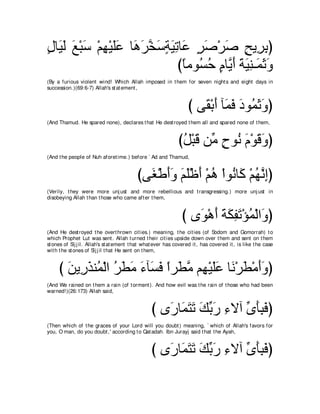 (بِرِيحٍ صَرْصَرٍ عَاتِيَةٍسَخَّرَهَا عَلَيْهِمْ سَبْعَ لَيَالٍ
وَثَمَـنِيَةَ أَيَّامٍ حُسُوماً)
(By a furious violent wind! Which Allah imposed in them for seven nights and eight days in
succession.)(69:6-7) Allah's statement,
(وَثَمُودَ فَمَآ أَبْقَى )
(And Thamud. He spared none), declares that He destroyed them all and spared none of them.
(وَقَوْمَ نُوحٍ مِّن قَبْلُ)
(And the people of Nuh aforetime.) before `Ad and Thamud,
(إِنَّهُمْ كَانُواْ هُمْ أَظْلَمَ وَأَطْغَى)
(Verily, they were more unjust and more rebellious and transgressing.) more unjust in
disobeying Allah than those who came after them,
(وَالْمُؤْتَفِكَةَ أَهْوَى )
(And He destroyed the overthrown cities.) meaning, the cities (of Sodom and Gomorrah) to
which Prophet Lut was sent. Allah turned their cities upside down over them and sent on them
stones of Sijjil. Allah's statement that whatever has covered it, has covered it, is like the case
with the stones of Sijjil that He sent on them,
(وَأَمْطَرْنَا عَلَيْهِم مَّطَراً فَسَآءَ مَطَرُ الْمُنذَرِينَ )
(And We rained on them a rain (of torment). And how evil was the rain of those who had been
warned!)(26:173) Allah said,
(فَبِأَىِّ آلَاءِ رَبِّكَ تَتَمَارَى )
(Then which of the graces of your Lord will you doubt) meaning, `which of Allah's favors for
you, O man, do you doubt,' according to Qatadah. Ibn Jurayj said that the Ayah,
(فَبِأَىِّ آلَاءِ رَبِّكَ تَتَمَارَى )